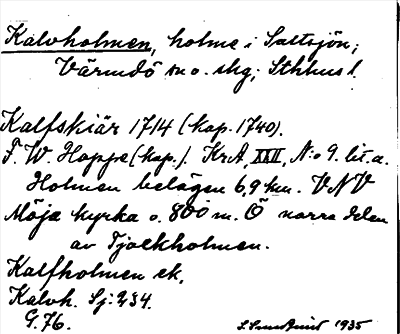 Kalvholmen, holme i Saltsjön;
Värmdö sn o. shg; Sthlms l.
Kalfskiär 1714 (kop. 1740).
F. W. Hoppe (kop.). KrA, XXII, N:o 9. lit. a.
Holmen belägen 6,9 km. VNV
Möja kyrka o. 800 m. Ö norra delen
av Tjockholmen.
Kalfholmen ek.
Kalvh. Sj: 234.
G. 76.
1935